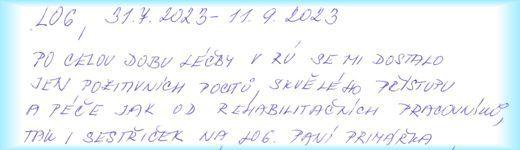 LOG, 31.7.2023 - 11.9.2023
PO CELOU DOBU LÉČBY V RÚ SE MI DOSTALO
JEN POZITIVNÍCH POCITŮ, SKVĚLÉHO PŘÍSTUPU
A PÉČE JAK OD REHABILITAČNÍCH PRACOVNÍKŮ,
TAK I SESTŘIČEK NA LOG. PANÍ PRIMÁŘKA